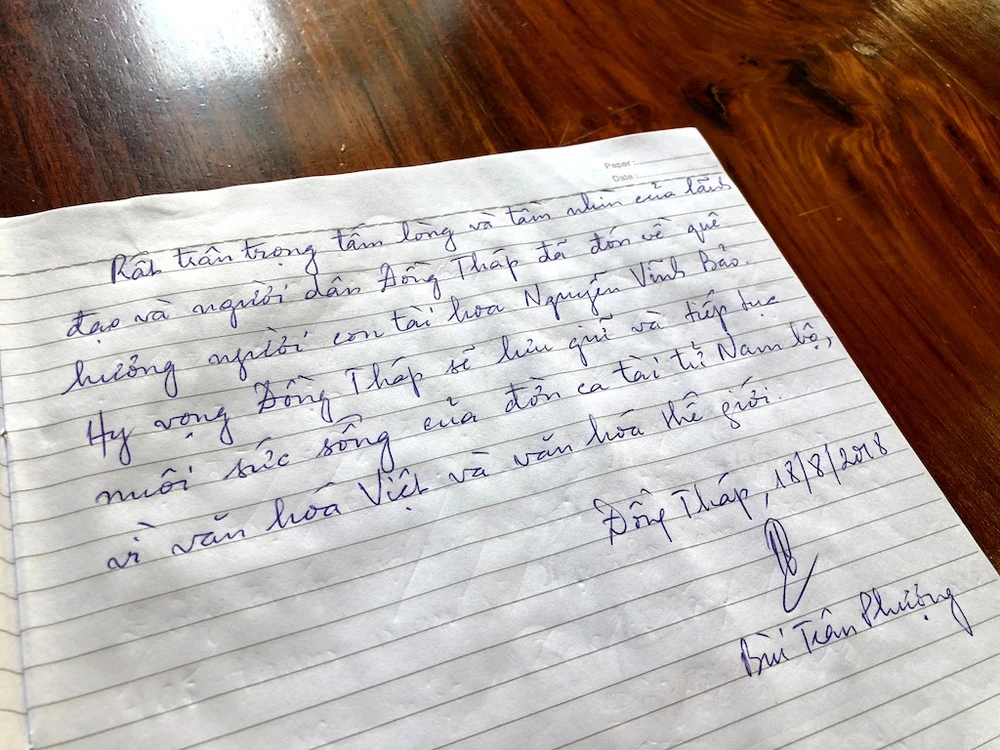 Paper :
Date :
Rất trân trọng tấm lòng và tầm nhìn của lãnh
đạo và người dân Đồng Tháp đã đón về quê
hương người con tài hoa Nguyễn Vĩnh Bảo.
Hy vọng Đồng Tháp sẽ lưu giữ và tiếp tục
nuôi sức sống của đờn ca tài tử Nam bộ,
vì văn hóa Việt và văn hóa thế giới.
Đồng Tháp, 18/8/2018
Bùi Trân Phượng